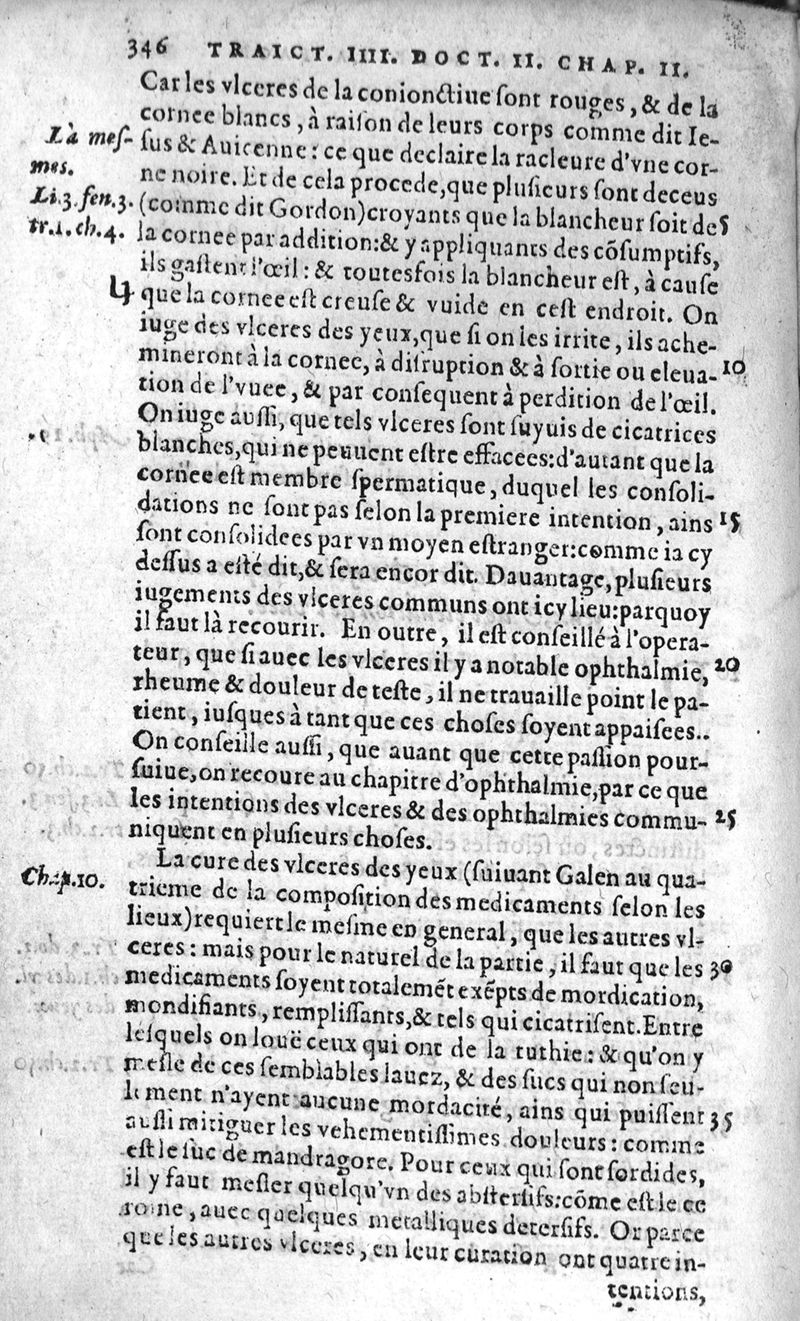 346 TRAICT. IIII. DOCT. II. CHAP. II.
Car les vlceres de la conionctiue ſont rouges, & de la
cornee blancs, à raiſon de leurs corps comme dit Ie-
Là meſ- ſus & Auicenne: ce que declaire la racleure d'vne cor-
mes. ne noire. Et de cela procede, que pluſieurs ſont deceus
Li.3.fen.3. (comme dit Gordon) croyants que la blancheur ſoit de 5
tr.1.ch.4. la cornee par addition: & y appliquants des cõſumptifs,
ils gaſtent l'œil: & toutesfois la blancheur eſt, à cauſe
que la cornee eſt creuſe & vuide en ceſt endroit. On
iuge des vlceres des yeux, que ſi on les irrite, ils ache-
mineront à la cornee, à diſruption & à ſortie ou eleua- 10
tion de l'vuee, & par conſequent à perdition de l'œil.
On iuge auſſi, que tels vlceres ſont ſuyuis de cicatrices
blanches, qui ne peuuent eſtre effacees: d'autant que la
cornee eſt membre ſpermatique, duquel les conſoli-
dations ne ſont pas ſelon la premiere intention, ains 15
ſont conſolidees par vn moyen eſtranger: comme ia cy
deſſus a eſté dit, & ſera encor dit. Dauantage, pluſieurs
iugements des vlceres communs ont icy lieu: parquoy
il faut là recourir. En outre, il eſt conſeillé à l'opera-
teur, que ſi auec les vlceres il y a notable ophthalmie, 20
rheume & douleur de teſte, il ne trauaille point le pa-
tient, iuſques à tant que ces choſes ſoyent appaiſees..
On conſeille auſſi, que auant que cette paſſion pour-
ſuiue, on recoure au chapitre d'ophthalmie, par ce que
les intentions des vlceres & des ophthalmies commu- 25
niquent en pluſieurs choſes.
La cure des vlceres des yeux (ſuiuant Galen au qua-
Chap.10. trieme de la compoſition des medicaments ſelon les
lieux) requiert le meſme en general, que les autres vl-
ceres: mais pour le naturel de la partie, il faut que les 30
medicaments ſoyent totalemẽt exẽpts de mordication,
mondifiants, rempliſſants, & tels qui cicatriſent. Entre
leſquels on louë ceux qui ont de la tuthie: & qu'on y
meſle de ces ſemblables lauez, & des ſucs qui non ſeu-
lement n'ayent aucune mordacité, ains qui puiſſent 35
auſſi mitiguer les vehementiſſimes douleurs: comme
eſt le ſuc de mandragore. Pour ceux qui ſont ſordides,
il y faut meſler quelqu'vn des abſterſifs: cõme eſt le ce
roine, auec quelques metalliques deterſifs. Or parce
que les autres vlceres, en leur curation ont quatre in-
tentions,